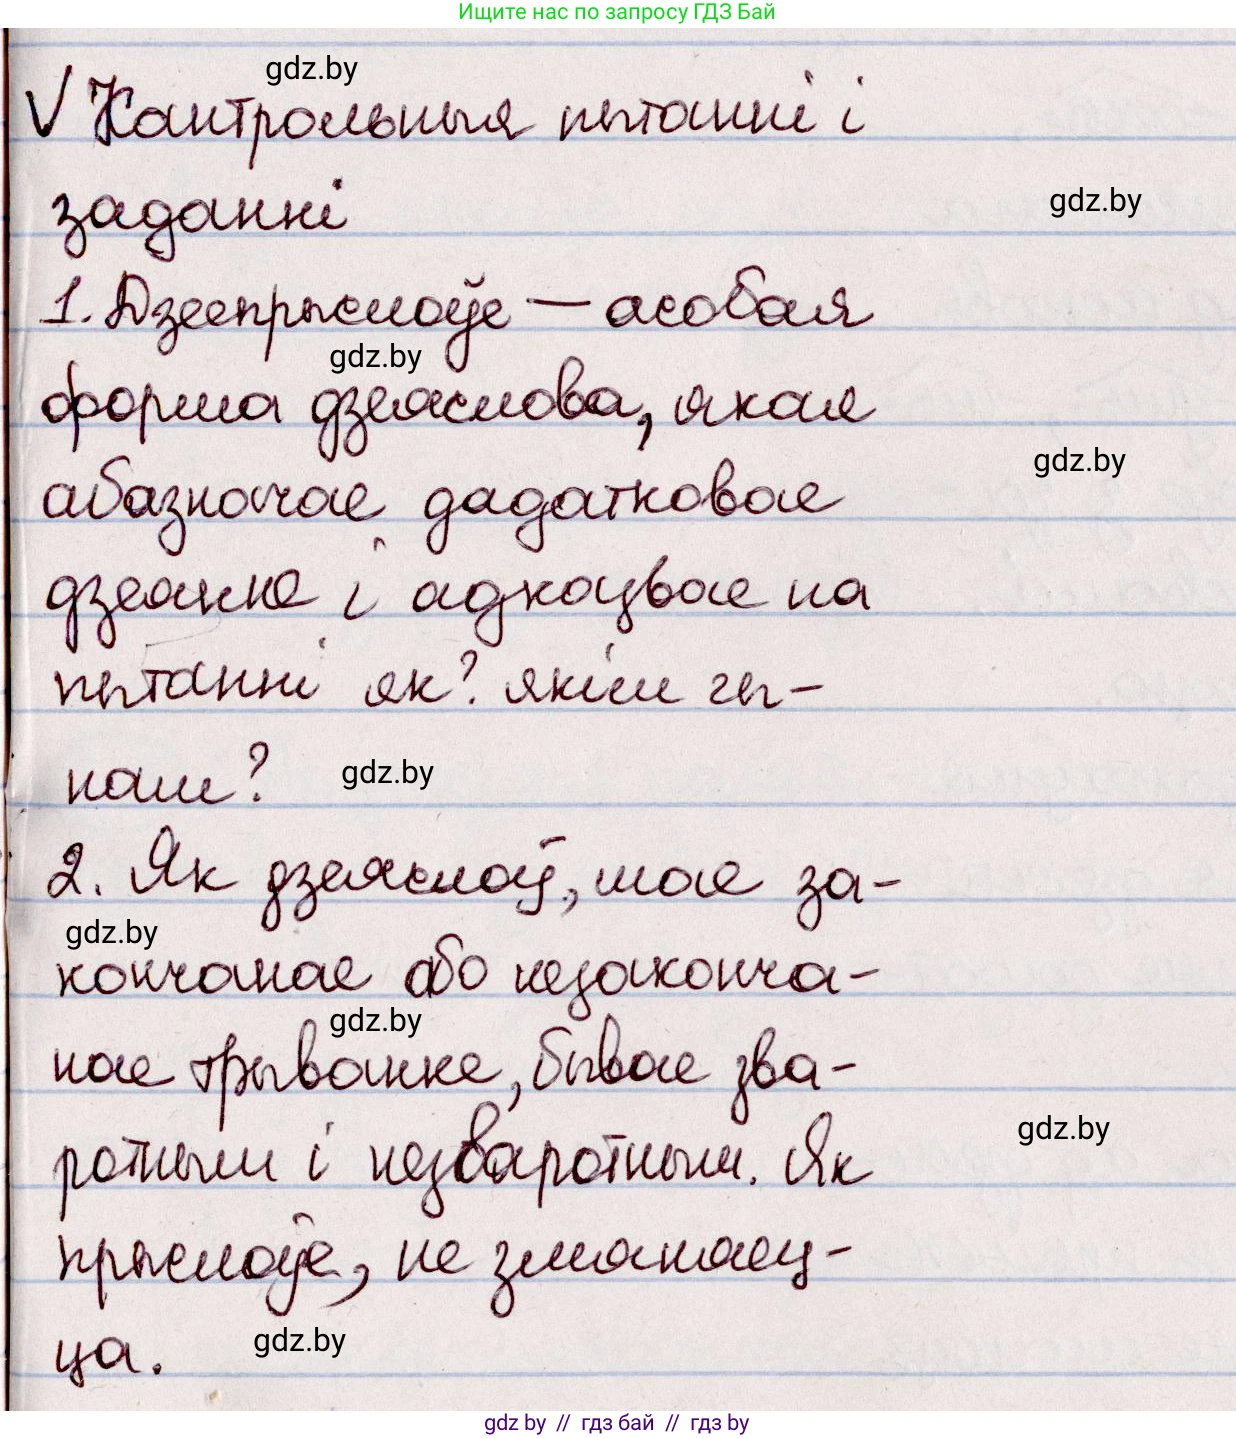 Ищите нас по запросу ГДЗ Бай
gdz.by
√ Кантрольныя пытанні і
заданні
gdz.by
1. Дзеепрыслоўе — асобая
gdz.by
форма дзеяслова, якая
gdz.by
абазначае дадатковае
дзеянне і адказвае на
пытанні як? якім чы-
нам?
gdz.by
2. Як дзеяслоў, мае за-
gdz.by
кончанае або незаконча-
gdz.by
нае трыванне, бывае зва-
gdz.by
ротным і незваротным. Як
прыслоўе, не змяняец-
ца.
gdz.by
gdz by // гдз бай // гдз by